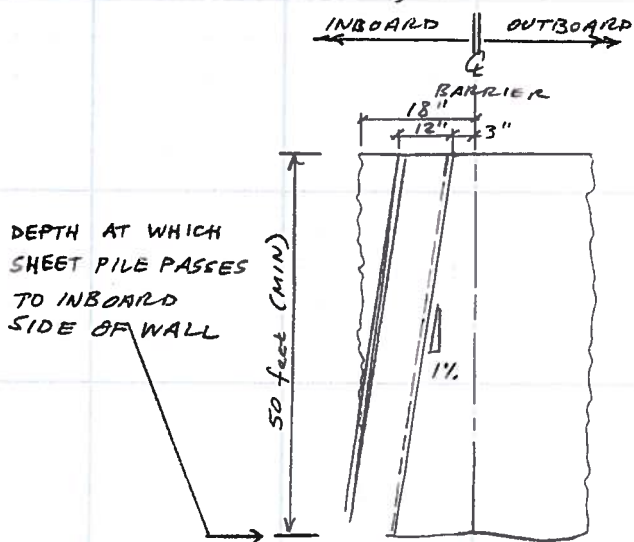 INBOARD OUTBOARD
℄
BARRIER
18"
12" 3"
DEPTH AT WHICH
SHEET PILE PASSES
TO INBOARD
SIDE OF WALL
50 feet (MIN)
1%